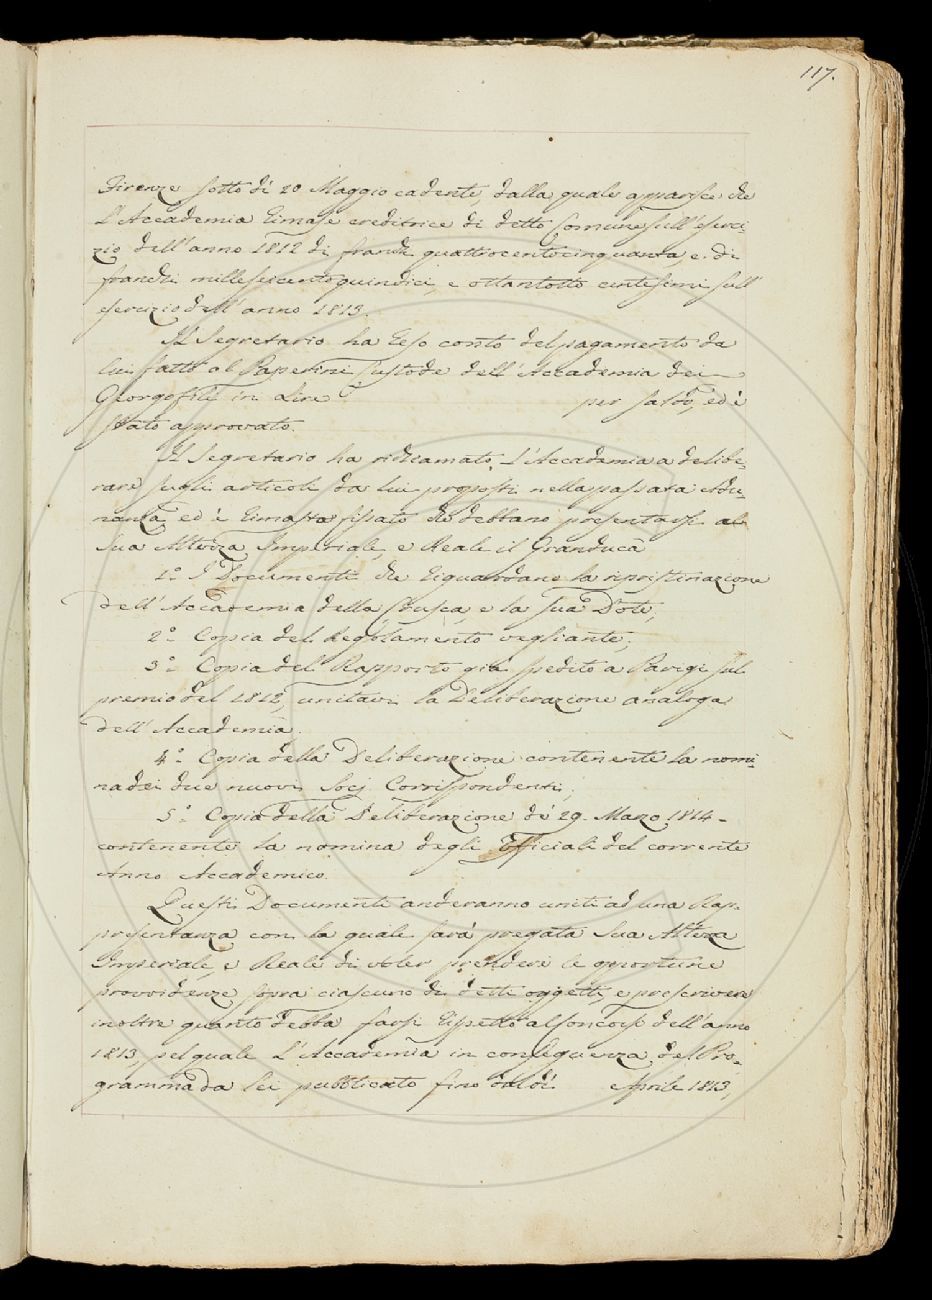 117.
Firenze sotto dì 20 Maggio cadente, dalla quale apparisce che
l'Accademia rimase creditrice di detto Comune sull'eserci-
zio dell'anno 1812 di franchi quattrocentocinquanta, e di
franchi milleseicentoquindici, e ottantotto centesimi sull'
esercizio dell'anno 1813.
Il Segretario ha reso conto del pagamento da
lui fatto al Paperini Custode dell'Accademia dei
Georgofili in Lire per saldo, ed è
stato approvato.
Il Segretario ha richiamato l'Accademia a delibe-
rare sugli articoli da lui proposti nella passata Adu-
nanza ed è rimasta fissato che debbano presentarsi al
Sua Altezza Imperiale, e Reale il Granduca
1.º I Documenti che riguardano la ripristinazione
dell'Accademia della Crusca, e la sua Dote;
2.º Copia del Regolamento vegliante;
3.º Copia del Rapporto già spedito a Parigi sul
premio del 1812, unitavi la Deliberazione analoga
dell'Accademia.
4.º Copia della Deliberazione contenente la nomi-
na dei due nuovi Socj Corrispondenti;
5.º Copia della Deliberazione de' 29. Marzo 1814-
contenente la nomina degli Officiali del corrente
Anno Accademico.
Questi Documenti anderanno uniti ad una Rap-
presentanza con la quale sarà pregata Sua Altezza
Imperiale, e Reale di voler prendere le opportune
provvidenze sopra ciascuno di detti oggetti, e prescrivere
inoltre quanto debba farsi rispetto al Concorso dell'anno
1813, pel quale l'Accademia in conseguenza del Pro-
gramma da lei pubblicato fino dal dì Aprile 1813,